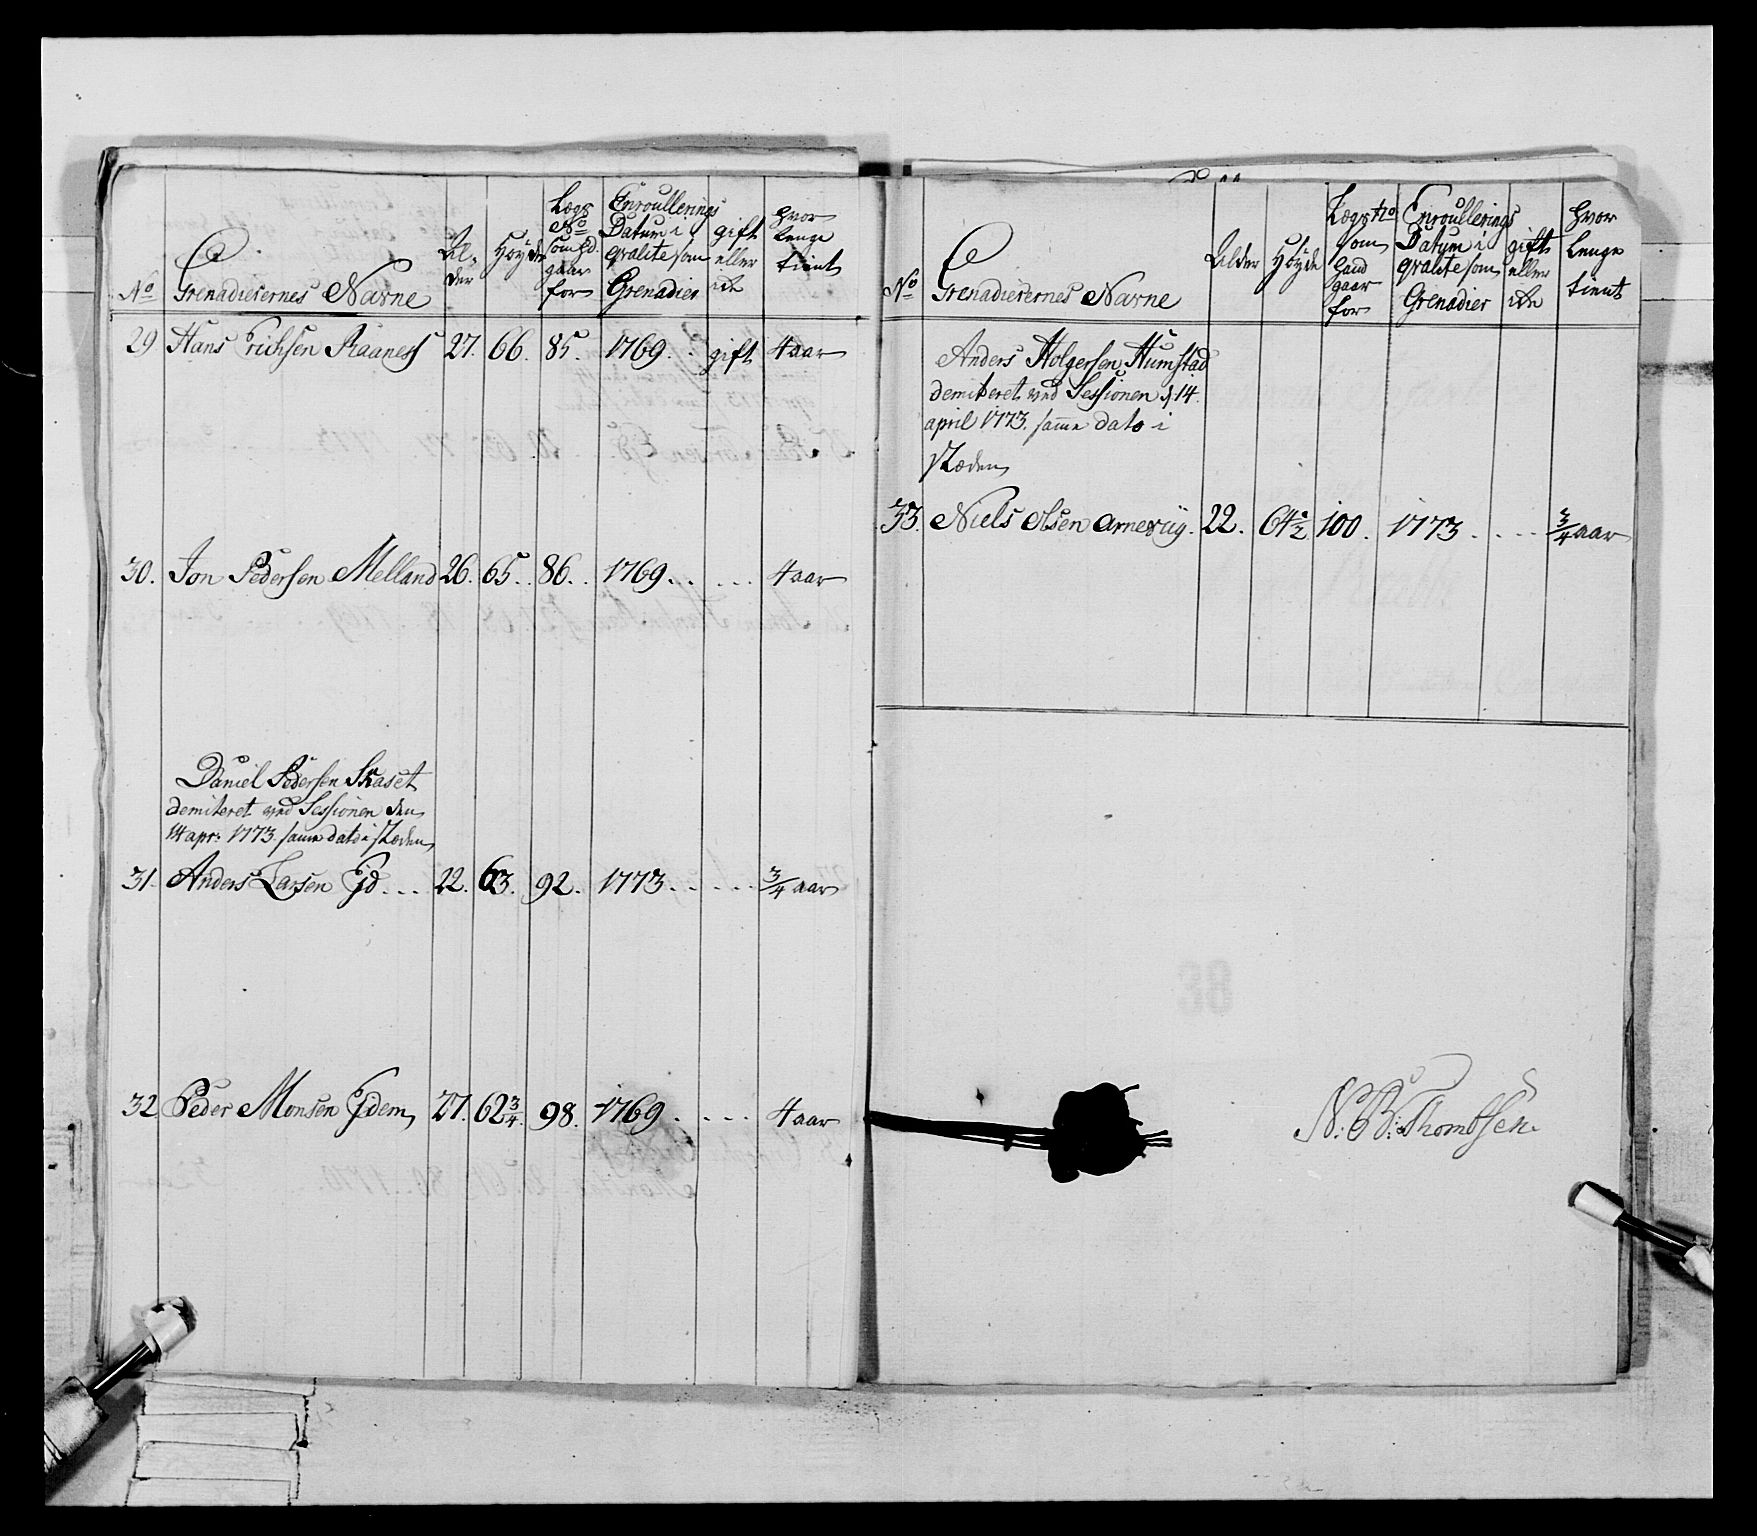 No
Grenaderernes Navne
Al-
der
Høyde
Lægs
No
som Hd
gaar
for
Enroullerings
Datum i
qvalite som
Grenadier
gift
eller
ei
hvor
lenge
tient
29 Hans Erichsen Raaness 27. 66. 85. 1769. gift 4 aar
30. Jon Pedersen Melland 26. 65. 86. 1769. 4 aar
Daniel Pedersen Skaset
demiteret ved Sessionen den
14 apr: 1773. samme dato i stæden
31. Anders Larsen Ejd 22. 63. 92. 1773. 3/4 aar
32 Peder Monsen Ejdem 27. 62 3/4. 98. 1769. 4 aar
No
Grenaderernes Navne
Alder
Høyde
Lægs No
som
hand
gaar
for
Enroullerings
Datum i
qvalite som
Grenadier
gift
eller
ei
hvor
lenge
tient
Anders Holgersen Humstad
demiteret ved Sessionen d 14
april 1773. samme dato i
stæden
33. Niels Olsen Arneviig. 22. 64 1/2 100. 1773. 3/4 aar
38
N: B: Thombsen.